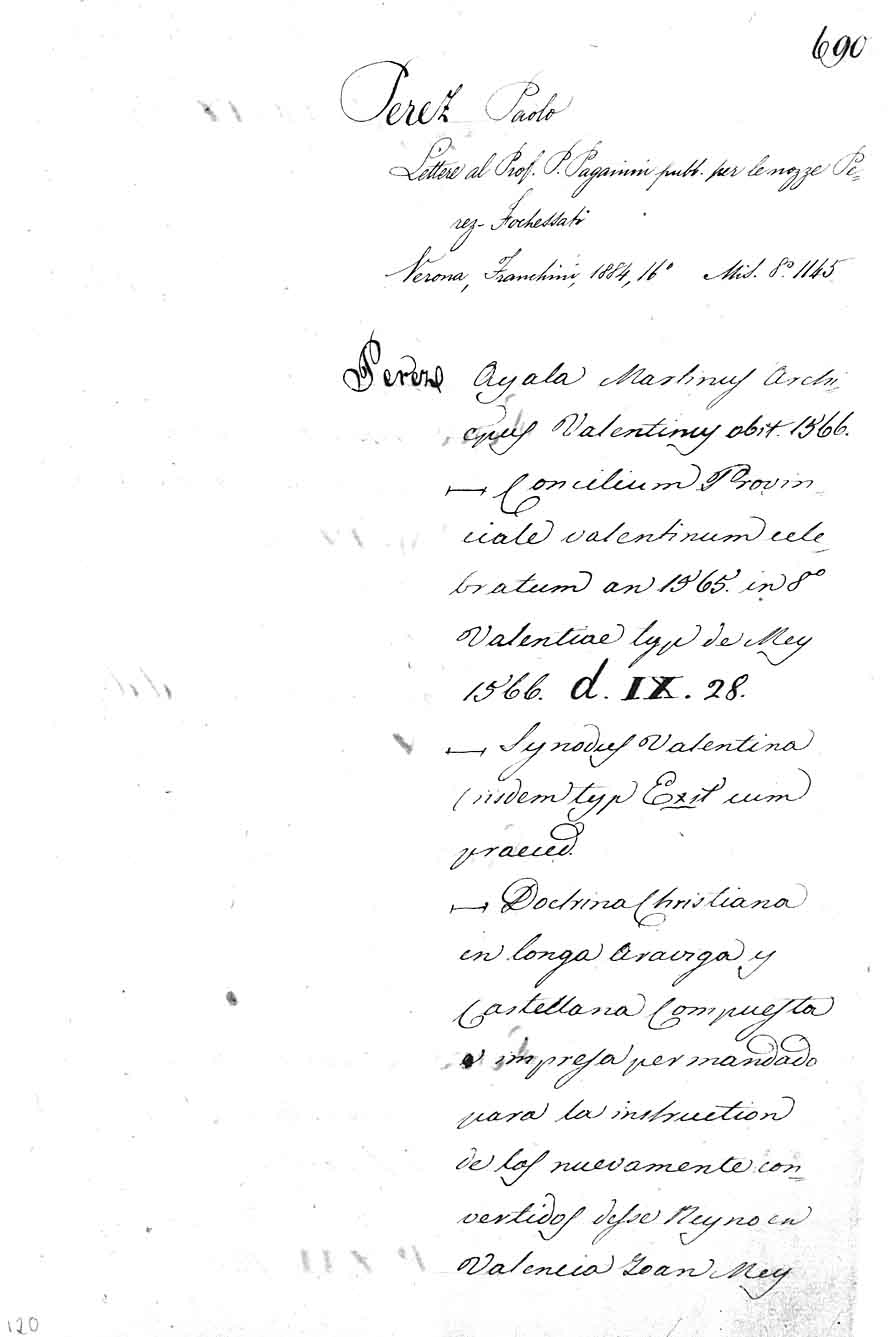 690
Perez Paolo
Lettere al Prof. P. Paganini pubb. per le nozze Pe=
rez-Fochessati
Verona, Franchini, 1884, 16° Mis. 8° 1145
Perez Ayala Martinus Archi-
epus Valentinus obit. 1566.
⊢⊣ Concilium Provin_
ciale valentinum cele_
bratum an 1565. in 8°
Valentiae typ de Mey
1566. d. IX. 28.
⊢⊣ Synodus Valentina
iisdem typ Exst cum
praeced.
⊢⊣ Doctrina Christiana
en longa Araviga y
Castellana Compuesta
e impresa per mandado
para la instruction
de los nuevamente con_
vertidos desse Reyno en
Valencia Ioan Mey
120